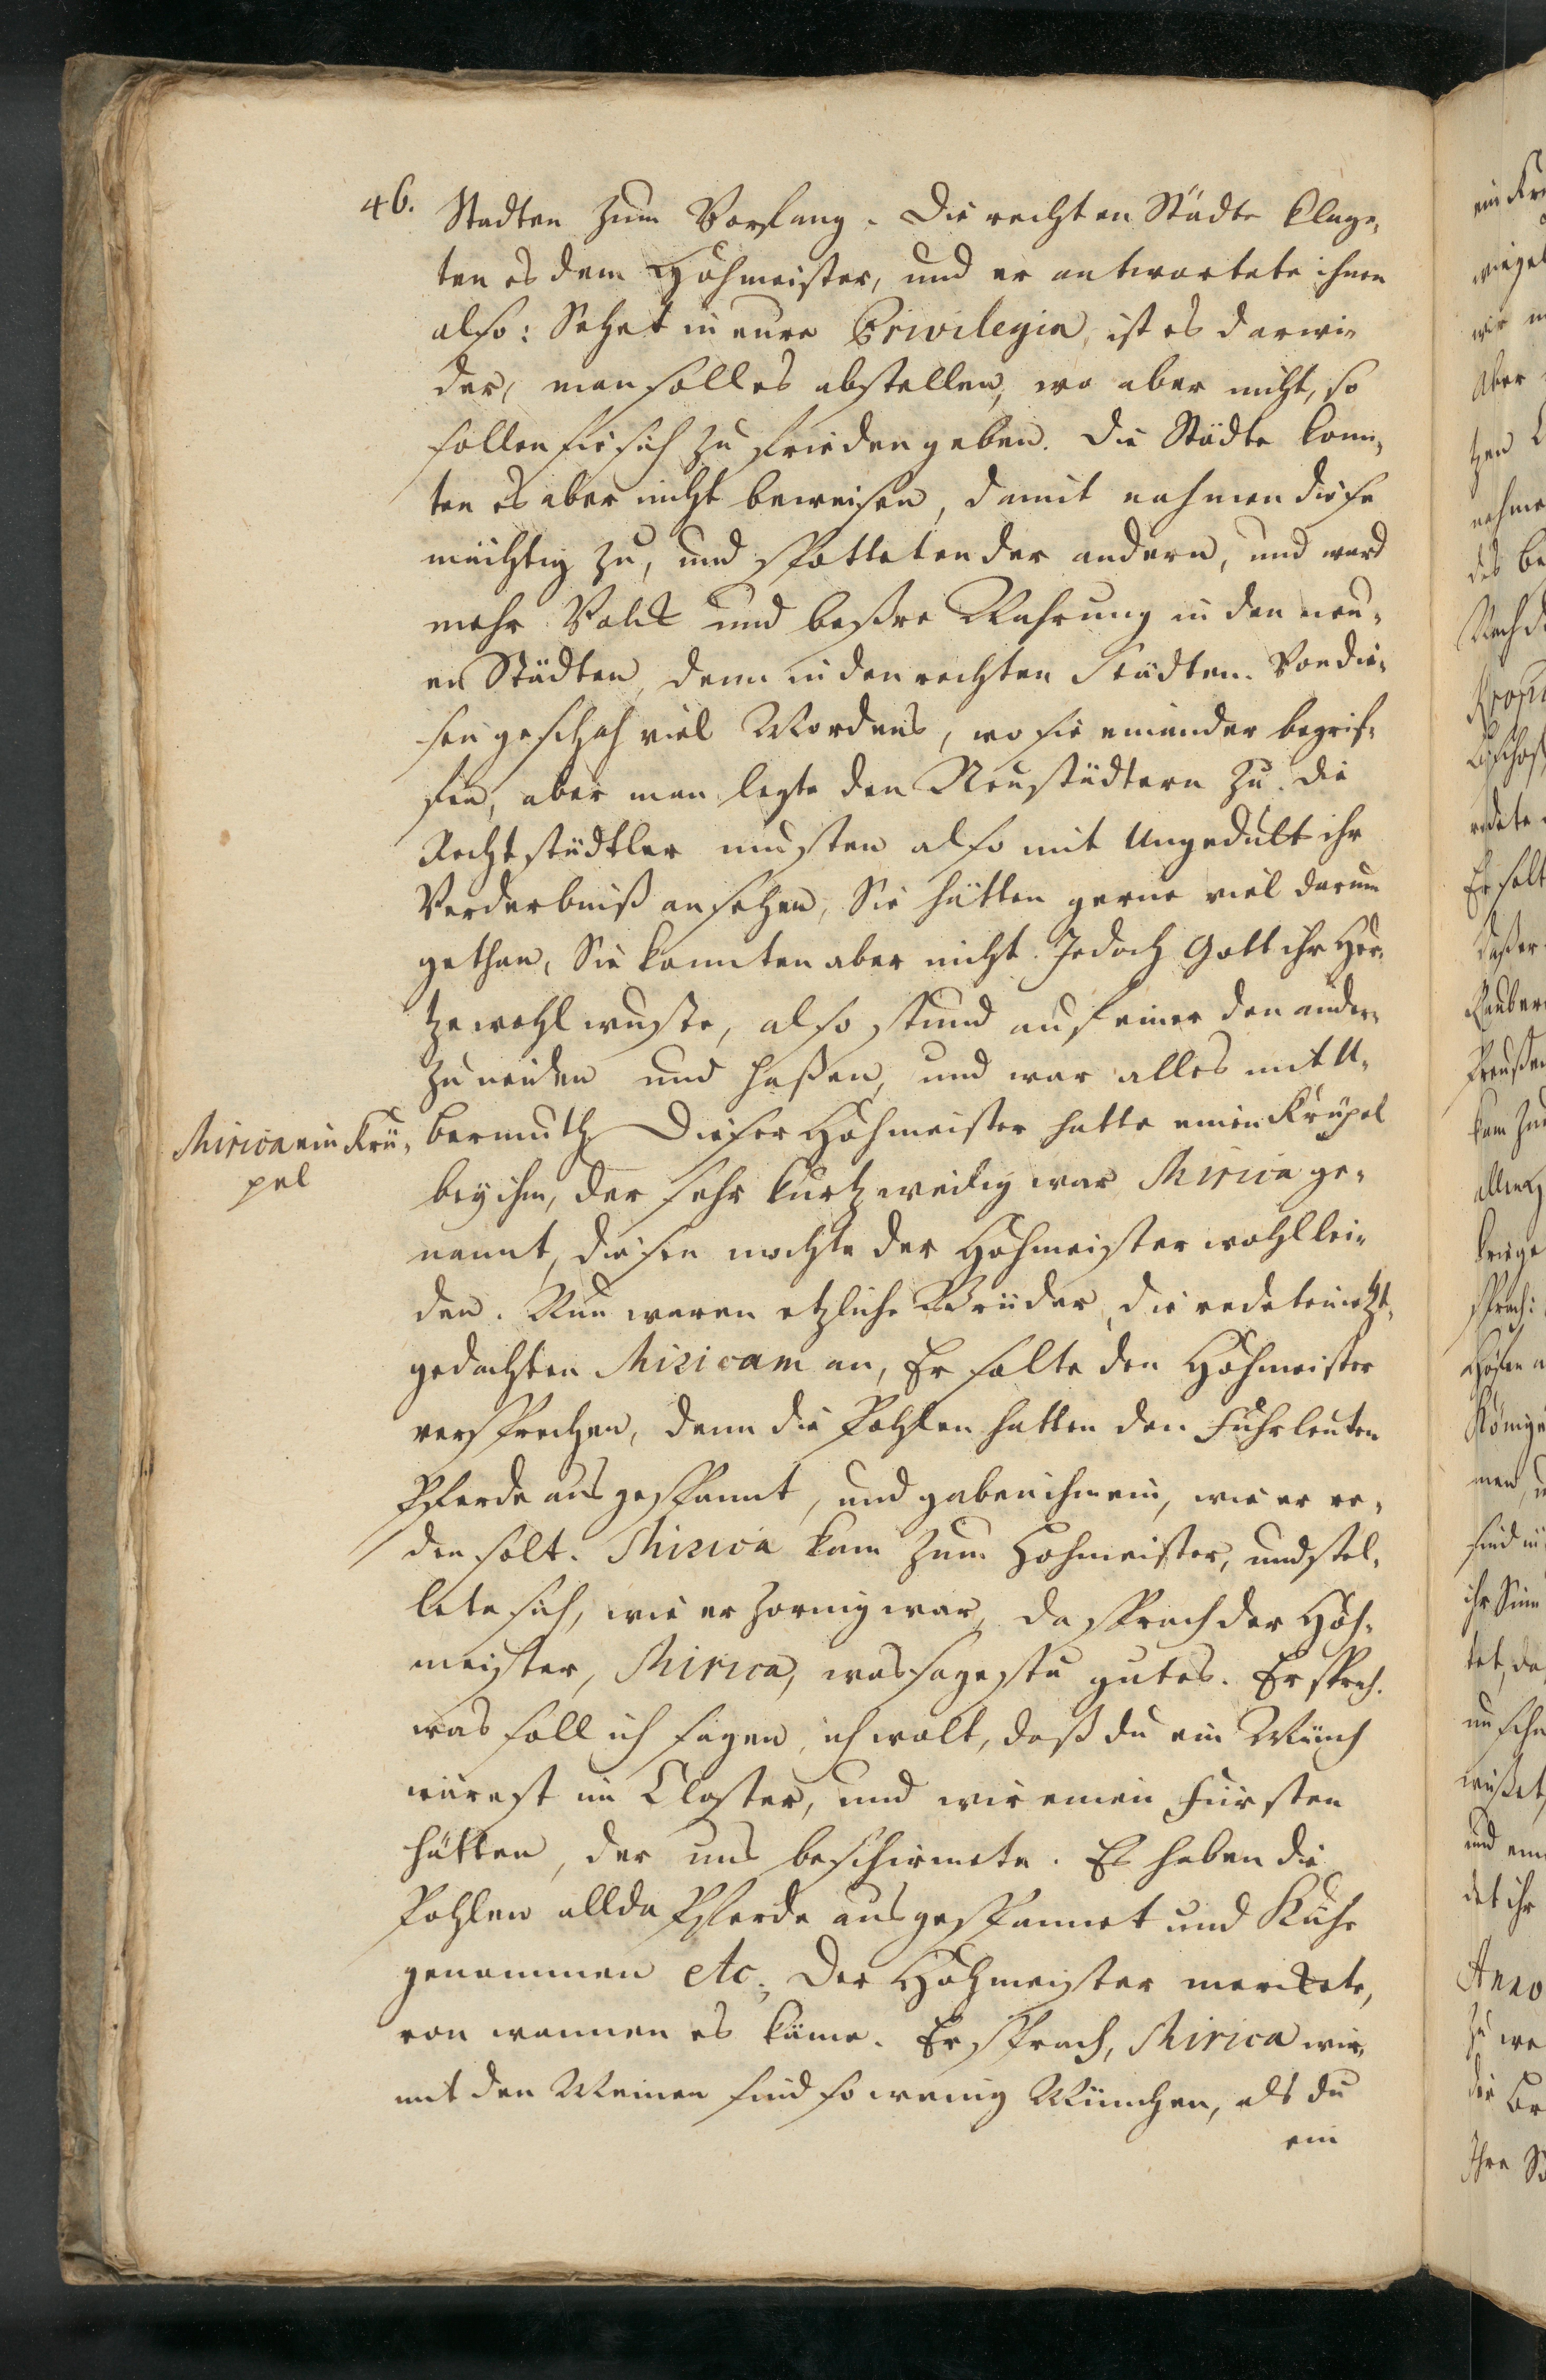 46.
Stadten zum Vorfang. Die rechten Städte klag-
ten es dem Hohmeister, und er antwortete ihnen
also: Sehet in eure Privilegia, ist es darwi-
der, man soll es abstellen, wo aber nicht, so
sollen sie sich zu frieden geben. Die Städte konn-
ten es aber nicht beweisen, damit nahmen diese
mächtig zu, und spotteten der andern, und ward
mehr Volck und beßre Nahrung in den neu-
en Städten, denn in den rechten Städten. Von die-
sen geschah viel Mordens, wo sie einander begrif-
fen, aber man legte den Neustädtern zu. Die
Rechtstädtler musten also mit Ungedult ihr
Verderbniß ansehen, Sie hätten gerne viel darum
gethan, Sie konnten aber nicht. Jedoch Gott ihr Her-
tze wohl wuste, also stund auf einer den andern
zu neiden und haßen, und war alles mit U-
bermuth. Dieser Hohmeister hatte einen Krüpel
bey ihm, der sehr kurtzweilig war Mirica ge-
nannt, diesen mochte der Hohmeister wohl lei-
den. Nun waren etzliche Brüder, die redeten ietzt-
gedachten Miricam an, Er solte den Hohmeister
versprechen, denn die Pohlen hatten den Fuhrleuten
Pferde ausgespannt, und gaben ihm ein, wie er re-
den solt. Mirica kam zum Hohmeister, und stel-
lete sich, wie er zornig war, da sprach der Hoh-
meister, Mirica, was sagestu gutes. Er sprach.
was soll ich sagen, ich wolt, daß du ein Münch
wärest im Closter, und wir einen Fürsten
hätten, der uns beschirmete. Es haben die
Pohlen allda Pferde ausgespannet und Kühe
genommen etc. Der Hohmeister merckete,
von wannen es käme. Er sprach, Mirica wir
mit den Meinen sind so wenig München, als du
ein
Mirica ein Krü-
pel